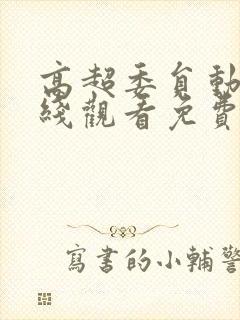 高超委自動
綫觀看免費
寫書的小輔警